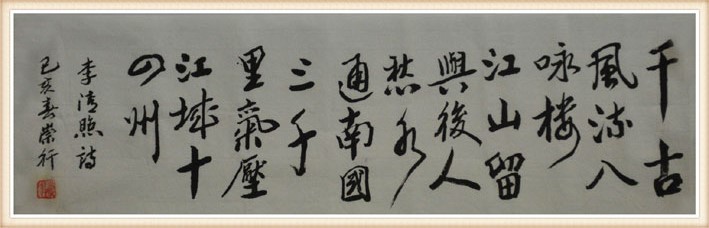 千古
風流八
咏楼
江山留
與後人
愁水
通南國
三千
里氣壓
江城十
四州
李清照詩
己亥春榮行